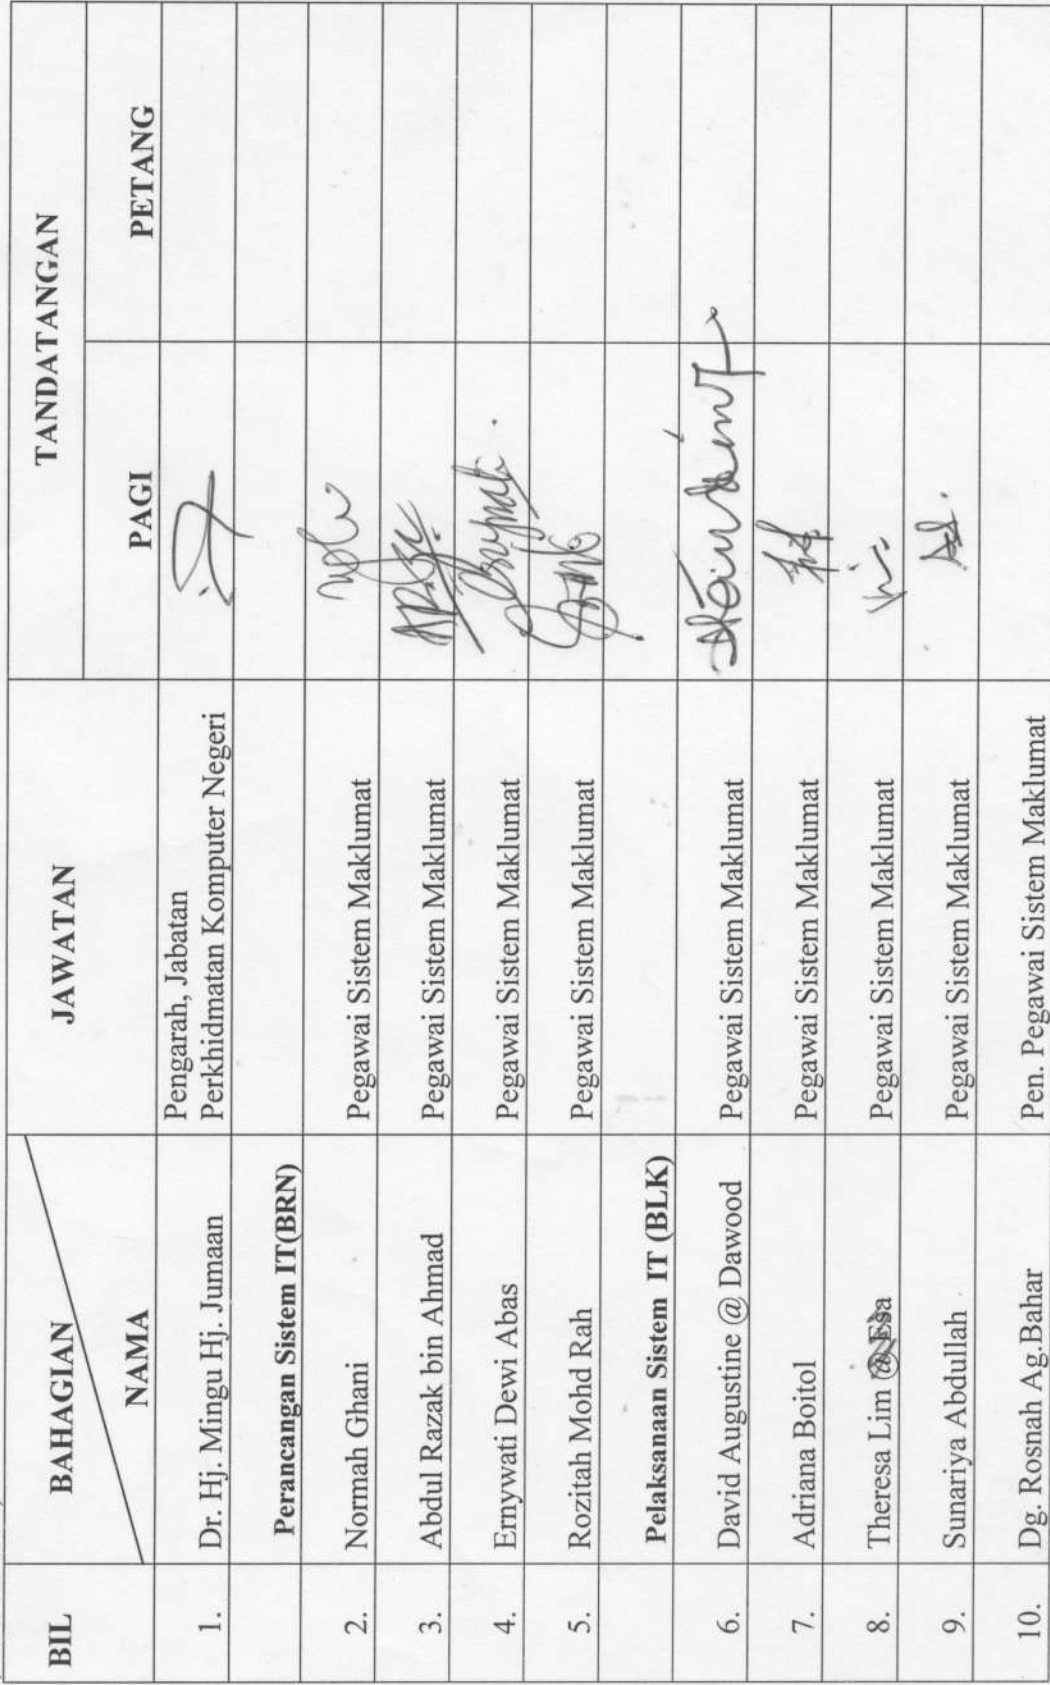 BIL BAHAGIAN JAWATAN TANDATANGAN
NAMA PAGI PETANG
1. Dr. Hj. Mingu Hj. Jumaan Pengarah, Jabatan
Perkhidmatan Komputer Negeri
Perancangan Sistem IT(BRN)
2. Normah Ghani Pegawai Sistem Maklumat
3. Abdul Razak bin Ahmad Pegawai Sistem Maklumat
4. Ernywati Dewi Abas Pegawai Sistem Maklumat
5. Rozitah Mohd Rah Pegawai Sistem Maklumat
Pelaksanaan Sistem IT (BLK)
6. David Augustine @ Dawood Pegawai Sistem Maklumat
7. Adriana Boitol Pegawai Sistem Maklumat
8. Theresa Lim @ Esa Pegawai Sistem Maklumat
9. Sunariya Abdullah Pegawai Sistem Maklumat
10. Dg. Rosnah Ag.Bahar Pen. Pegawai Sistem Maklumat